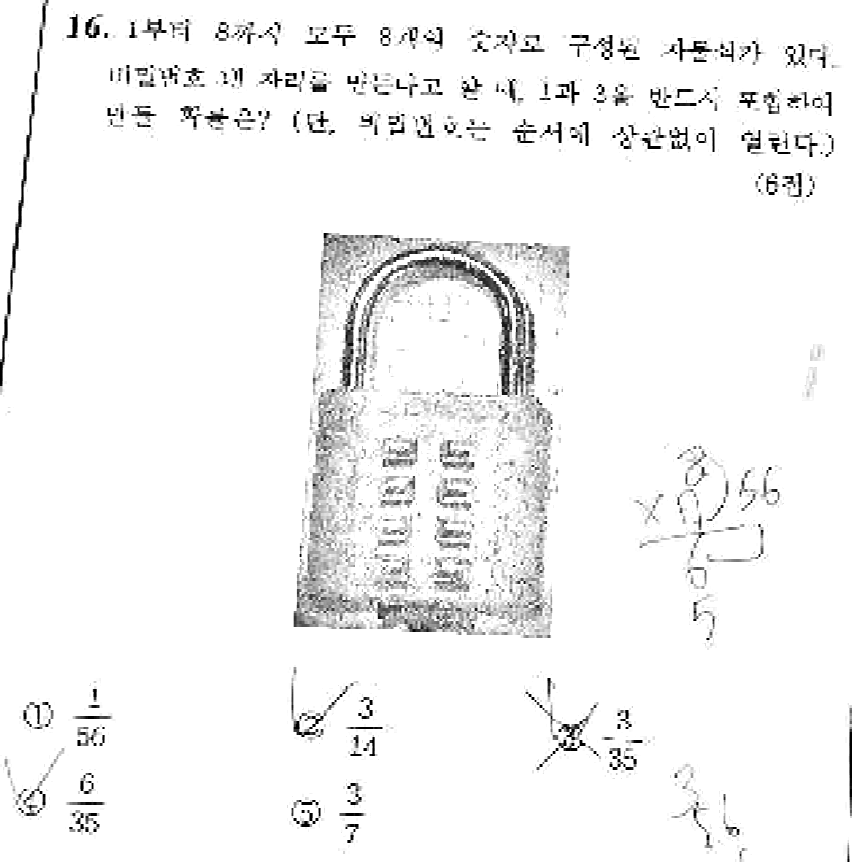 16. 1부터 8까지 모두 8개의 숫자로 구성된 자물쇠가 있다.
비밀번호 네 자리를 만든다고 할 때, 1과 3을 반드시 포함하여
만들 확률은? (단, 비밀번호는 순서에 상관없이 열린다.)
(6점)
8) 56
× 7
6
5
① 1/56 ② 3/14 ③ 3/35
④ 6/35 ⑤ 3/7